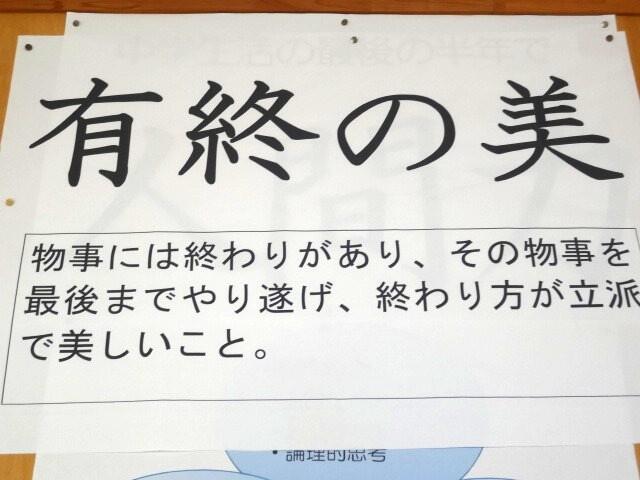 有終の美
物事には終わりがあり、その物事を
最後までやり遂げ、終わり方が立派
で美しいこと。
・論理的思考